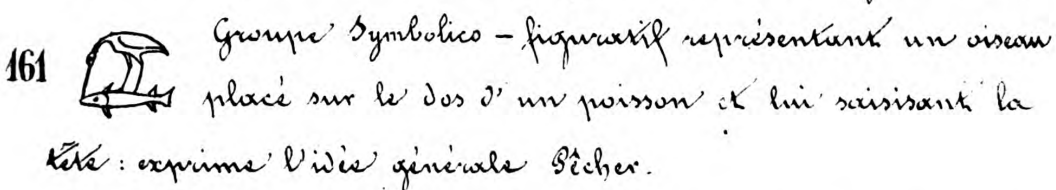 161 Groupe Symbolico-figuratif représentant un oiseau
placé sur le dos d'un poisson et lui saisisant la
tête : exprime l'idée générale Pêcher.